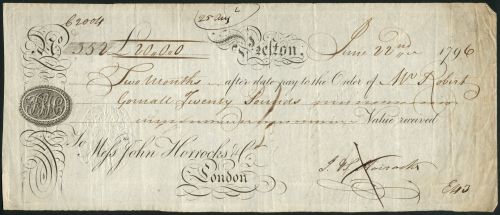 62004
25 Aug
No 352 £20.0.0 Preston, June 22nd 1796
Two Months after date pay to the Order of Mr Robert
Gornall Twenty Pounds
Value received
To Messrs John Horrocks & Co
London
J. Horrocks